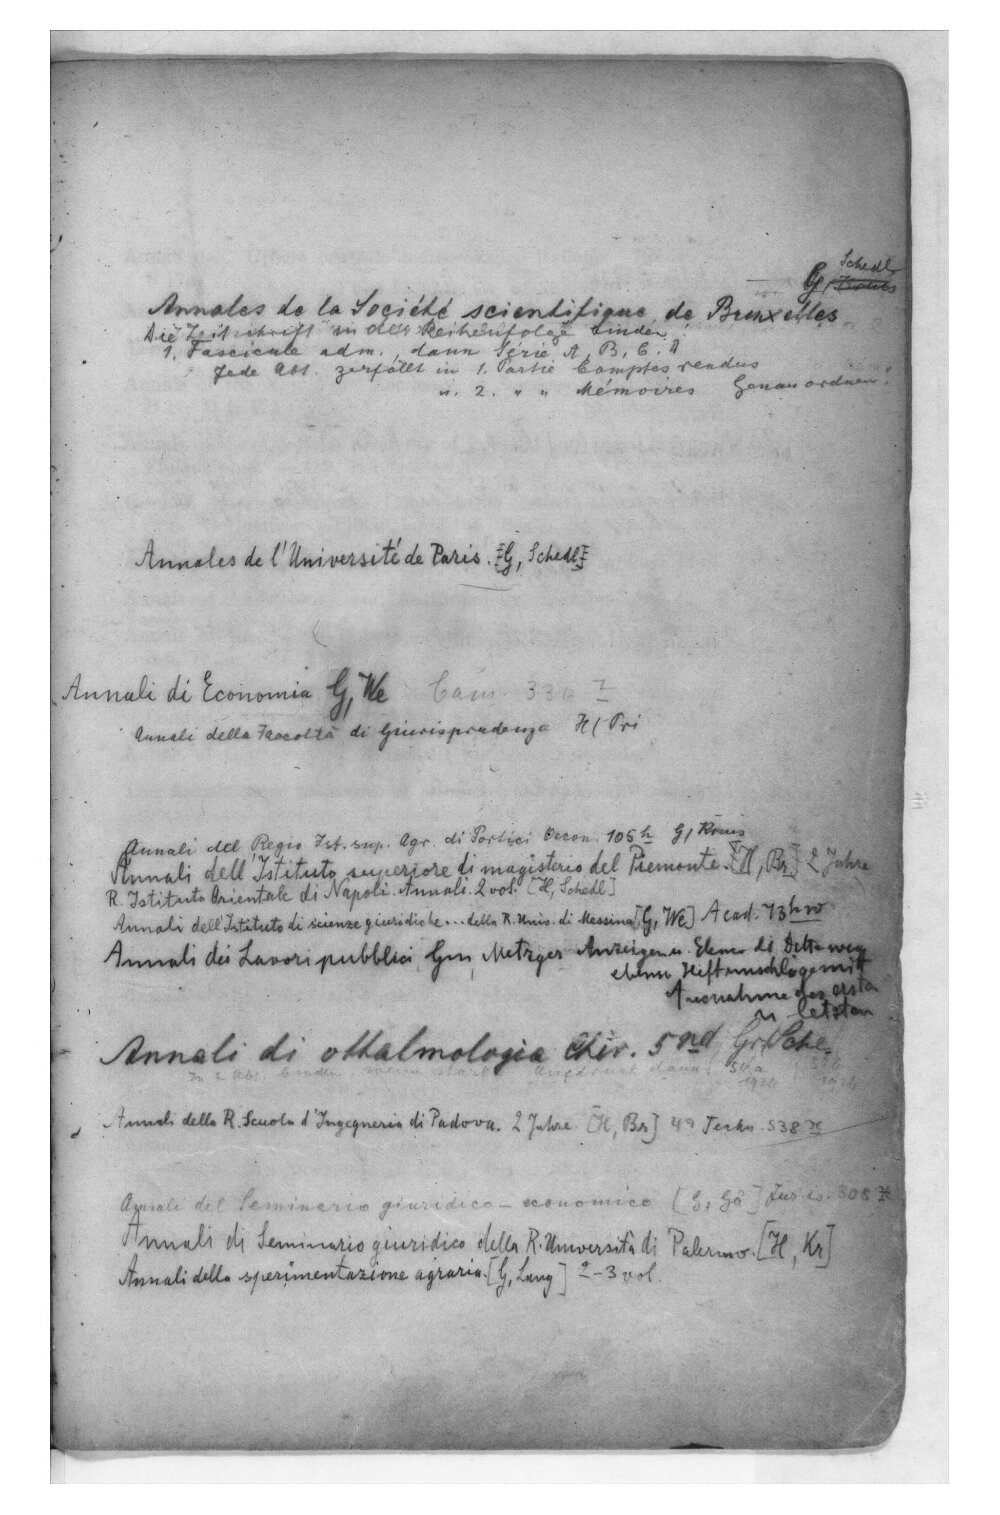 Schedl
G,
Annales de la Société scientifique de Bruxelles
Die Zeitschrift in der Reihenfolge binden:
1. Fascicule adm., dann Série A, B, C, D
Jede Abt. zerfällt in 1. Partie Comptes rendus
u. 2. " " Mémoires Genau ordnen!
Annales de l'Université de Paris. [G, Schedl]
Annali di Economia G, We Cam 336
Annali della Facoltà di Giurisprudenza H, Pri
Annali del Regio Ist. sup. Agr. di Portici Oecon. 106 h G, Kreis
Annali dell'Istituto superiore di magisterio del Piemonte. [H, Br] 2 Jahre
R. Istituto Orientale di Napoli. Annali. 2 vol. [H, Schedl]
Annali dell'Istituto di scienze giuridiche... della R. Univ. di Messina [G, We] Acad. 73 hw
Annali dei Lavori pubblici, Gm, Metzger Anzeigen u. Elenco di Ditte weg
ebenso Heftumschläge mit
Ausnahme des ersten
u letzten
Annali di ottalmologia Chir. 5 nd Gr, Sche.
in 2 Abt. binden, wenn stark
1926 1926
Annali della R. Scuola d'Ingegneria di Padova. 2 Jahre [H, Br] 4° Techn. 538
Annali del Seminario giuridico-economico [G, Gä] Juris. 308
Annali di Seminario giuridico della R. Università di Palermo. [H, Kr]
Annali della sperimentazione agraria. [G, Lang] 2-3 vol.